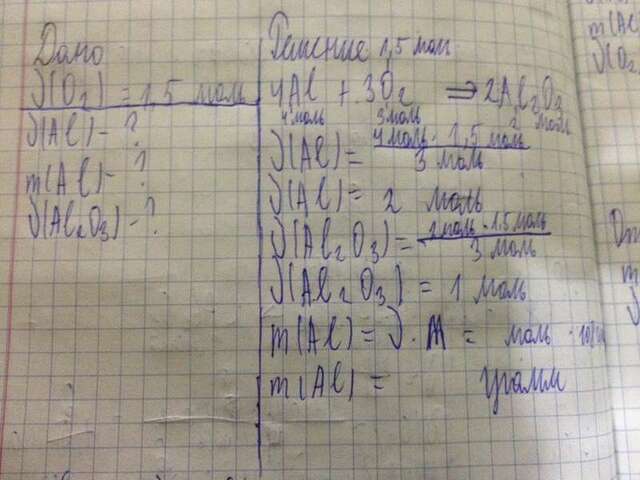 Дано
ν(O₂) = 1,5 моль
ν(Al) - ?
m(Al) - ?
ν(Al₂O₃) - ?
Решение 1,5 моль
4Al + 3O₂ ⇒ 2Al₂O₃
4 моль 3 моль 2 моль
ν(Al) = 4 моль · 1,5 моль
3 моль
ν(Al) = 2 моль
ν(Al₂O₃) = 2 моль · 1,5 моль
3 моль
ν(Al₂O₃) = 1 моль
m(Al) = ν · M = моль ·
m(Al) = грамм
m(Al
ν(O₂
m